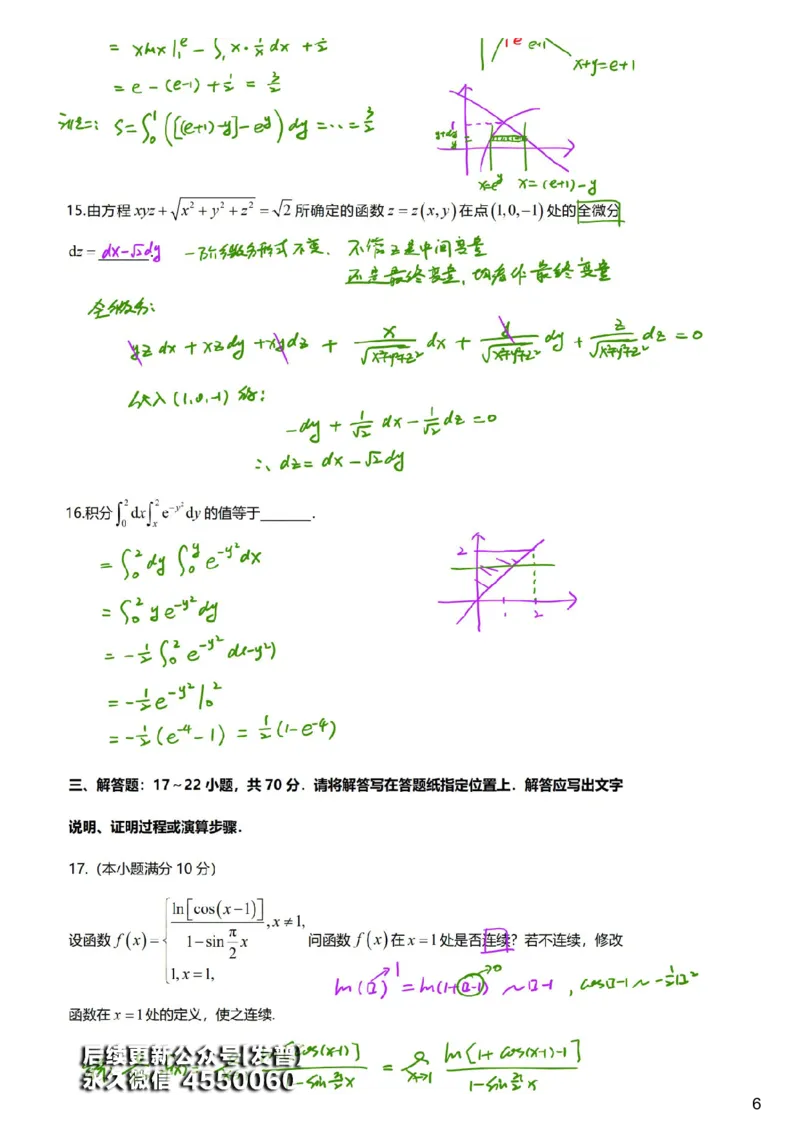 = xlnx|₁ᵉ - ∫₁ᵉ x·1/x dx + 1/2
= e - (e-1) + 1/2 = 3/2
法二: S=∫₀¹ ([(e+1)-y]-e^y) dy = ... = 3/2
1 e e+1
x+y=e+1
1
y+dy
y
x=e^y x=(e+1)-y
15.由方程 xyz + √(x²+y²+z²) = √2 所确定的函数 z = z(x,y) 在点 (1,0,-1) 处的全微分
dz = dx-√2dy
一阶全微分形式不变. 不管z是中间变量
还是最终变量, 均看作最终变量
全微分:
yz dx + xzdy + xydz + x/√(x²+y²+z²) dx + y/√(x²+y²+z²) dy + z/√(x²+y²+z²) dz = 0
代入 (1,0,-1) 得:
-dy + 1/√2 dx - 1/√2 dz = 0
∴ dz = dx - √2dy
16.积分 ∫₀² dx ∫ₓ² e^(-y²) dy 的值等于______.
= ∫₀² dy ∫₀^y e^(-y²) dx
= ∫₀² y e^(-y²) dy
= -1/2 ∫₀² e^(-y²) d(-y²)
= -1/2 e^(-y²) |₀²
= -1/2 (e^(-4) - 1) = 1/2 (1-e^(-4))
2
1 2
三、解答题：17～22 小题，共 70 分．请将解答写在答题纸指定位置上．解答应写出文字
说明、证明过程或演算步骤．
17.（本小题满分 10 分）
设函数 f(x) = { ln[cos(x-1)] / (1-sin π/2 x), x≠1, 1, x=1, 问函数 f(x) 在 x=1 处是否连续？若不连续，修改
ln(□) = ln(1+□-1) ~ □-1 , cos□-1 ~ -1/2 □²
1 0
函数在 x=1 处的定义，使之连续.
ln[cos(x-1)] / (1-sin π/2 x) = lim x→1 ln[1+cos(x-1)-1] / (1-sin π/2 x)
后续更新公众号[发普]
永久微信 4550060
6